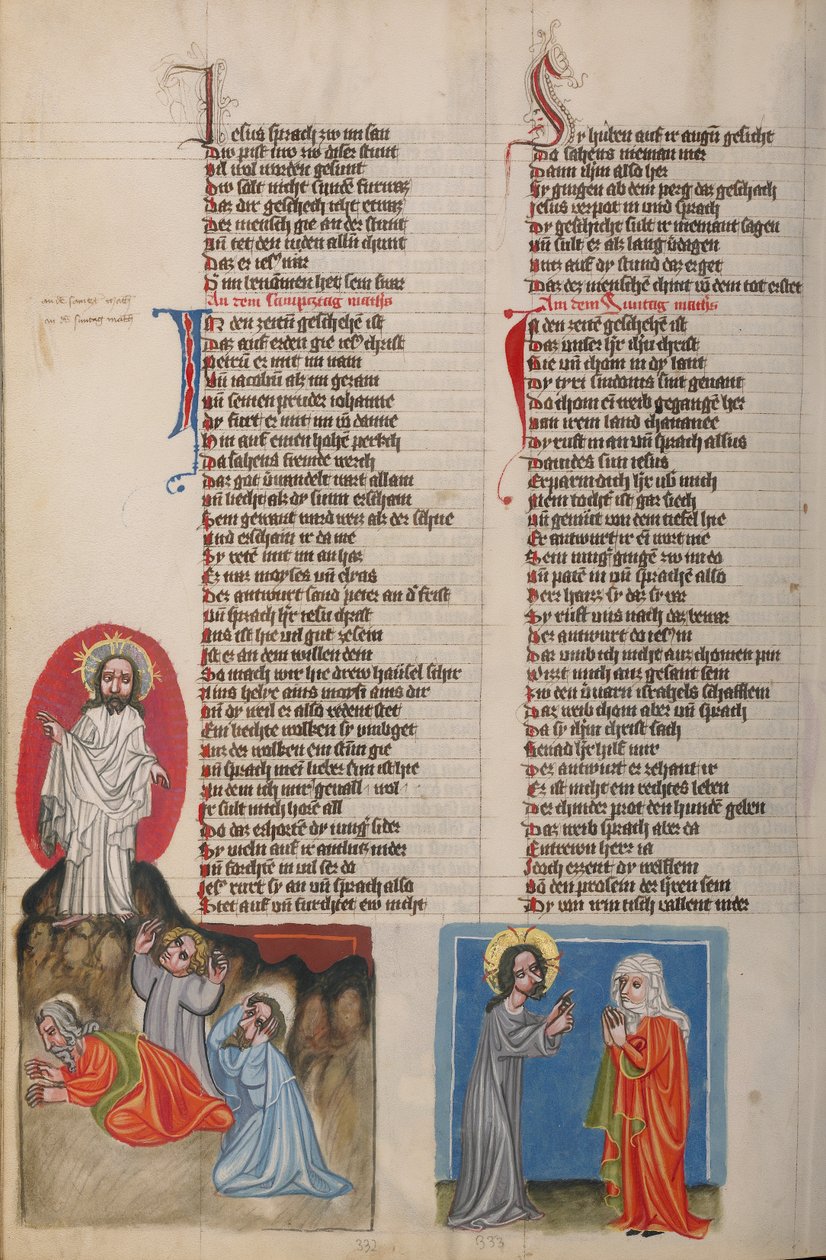 Jesus sprach zw im san
Dw pist nw zw diser stunt
Vil wol worden gesunt
Dw salt nicht sunden furwaz
Daz dir geschech icht etwaz
Der mensch gie an der stunt
Vn̄ tet den iuden allen chunt
Daz er iesus war
D' im benomen het sein swar
An dem sampcztag matheus
an de samczt math
an de suntag math
IN den zeiten geschehē ist
Daz auf erden gie iesus christ
Petrum er mit im nam
Vn̄ iacobum als im gezam
Vn̄ seinen pruder iohanne
Dy furt er mit im vō danne
Hin auf einen hohē perkch
Da sahens fremde werch
Daz got v'wandelt wart allain
Vn̄ liecht als dy sunn erschain
Sein gewant ward weiz als der schne
Vnd erschain ir da me
Sy retē mit im an haz
Ez war moyses vn̄ elyas
Der antwurt sand peter an d' frist
Vn̄ sprach h'r iesu christ
Uns ist hie vil gut zesein
Ist ez an dem willen dein
So mach wir hie drew haūsel schir
Ains helye ains moysi ains dir
Vn̄ dy weil er also redent stet
Ein liechte wolken sy umbget
Auz der wolken ein stim gie
Vn̄ sprach mein lieber sun ist hie
An dem ich mir geuall wol
Ir sult mich horē all
Do daz erhorten dy iung' sider
Sy vieln auf ir antlutz nider
Vn̄ forchtē in vil ser do
Jesus rurt sy an vn̄ sprach also
Stet auf vn̄ furchtet ew nicht
Sy huben auf ir augn̄ gesicht
Do sahens nieman mer
Dann ih'm also her
Sy gingen ab dem perg daz geschach
Jesus verpot in vnd sprach
Dy geschicht sult ir niemant sagen
Vn̄ sult ez als lang v'dagen
Untz auf dy stund daz erget
Daz dez menschē chint vō dem tot erstet
An dem Suntag matheus
IN den zeitē geschehē ist
Daz unser h'r ih'u christ
Hie vn̄ chom in dy lant
Dy tyri sindonis sint genant
Do chom ein weib gegangē her
Van irem land chananee
Dy ruft in an vn̄ sprach alsus
Dauides sun iesus
Erparm dich h'r ub' mich
Mein tocht' ist gar siech
Vn̄ gemut von dem tiefel hie
Er antwurt ir ein wort nie
Sein iung' gingē zw im do
Vn̄ patē in vn̄ sprachē also
Herr haiz sy daz sy var
Sy ruft uns nach daz bewar
Der antwurt da iesus in
Dar umb ich nicht auz chomen pin
Wirt mich auz gesant sein
Zw den v'larn israhels schafflein
Daz weib chom aber vn̄ sprach
Da sy ih'm christ sach
Genad h'r hilf mir
Der antwurt er zehant ir
Ez ist nicht ein rechtes leben
Der chinder prot den hundē geben
Daz weib sprach aber da
Entrewn herr ia
Idoch ezzent dy welflein
Vō den proslein der h'ren sein
Dy von irm tisch vallent nider
332
333